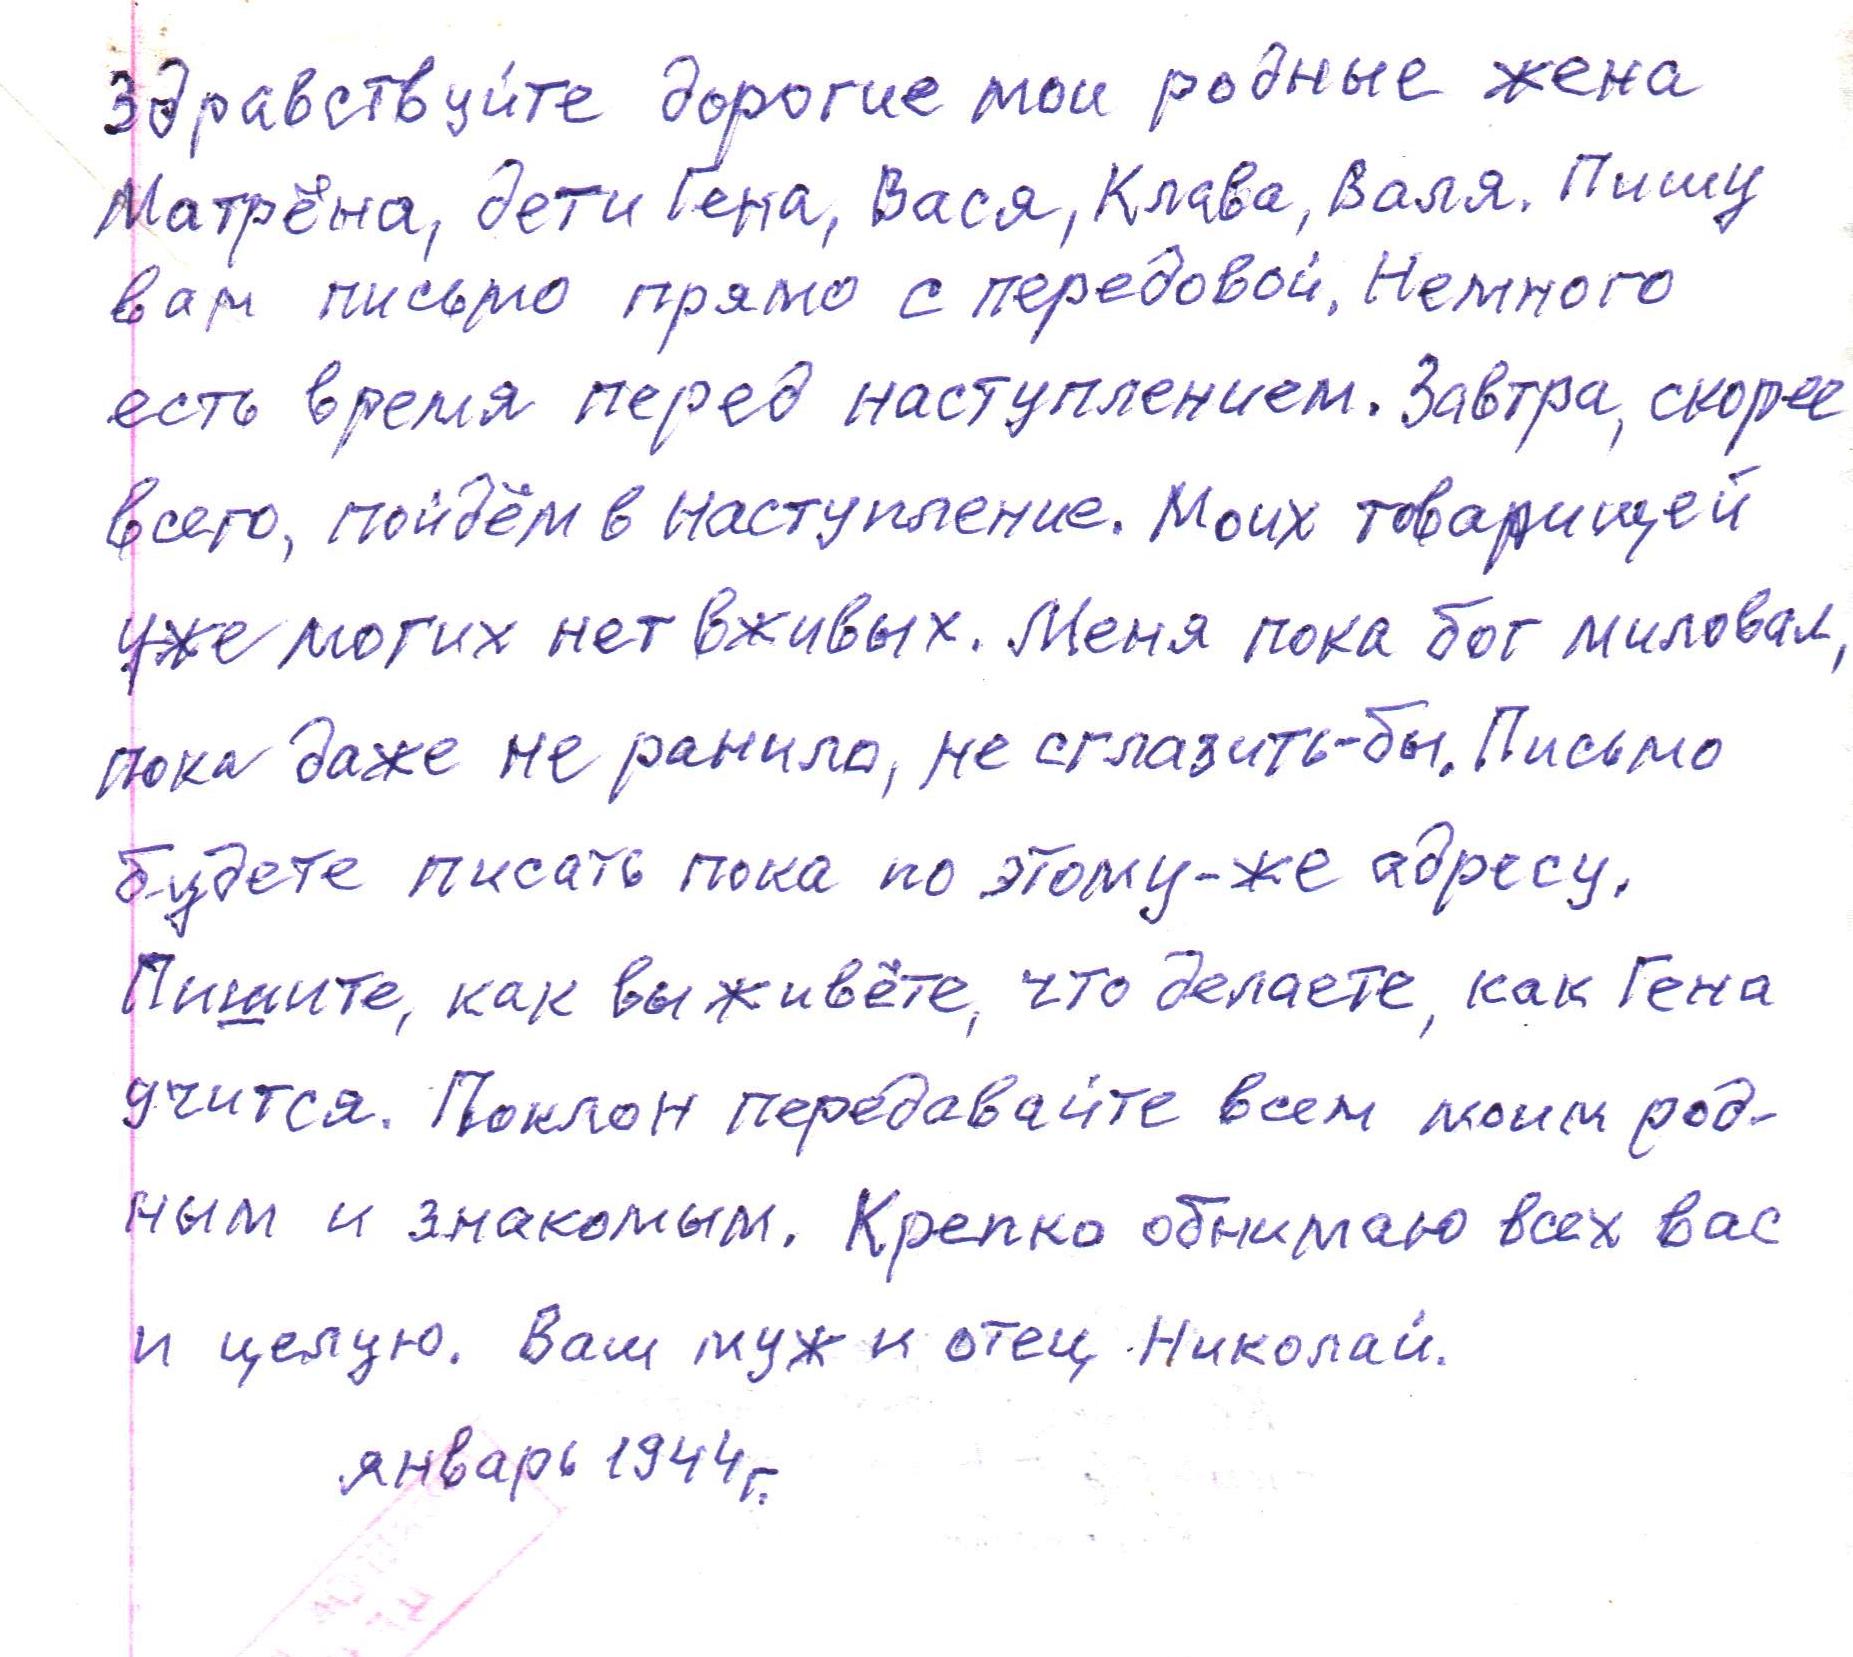 Здравствуйте дорогие мои родные жена
Матрёна, дети Гена, Вася, Клава, Валя. Пишу
вам письмо прямо с передовой. Немного
есть время перед наступлением. Завтра, скорее
всего, пойдём в наступление. Моих товарищей
уже могих нет вживых. Меня пока бог миловал,
пока даже не ранило, не сглазить-бы. Письмо
будете писать пока по этому-же адресу.
Пишите, как вы живёте, что делаете, как Гена
учится. Поклон передавайте всем моим род-
ным и знакомым. Крепко обнимаю всех вас
и целую. Ваш муж и отец Николай.
январь 1944г.